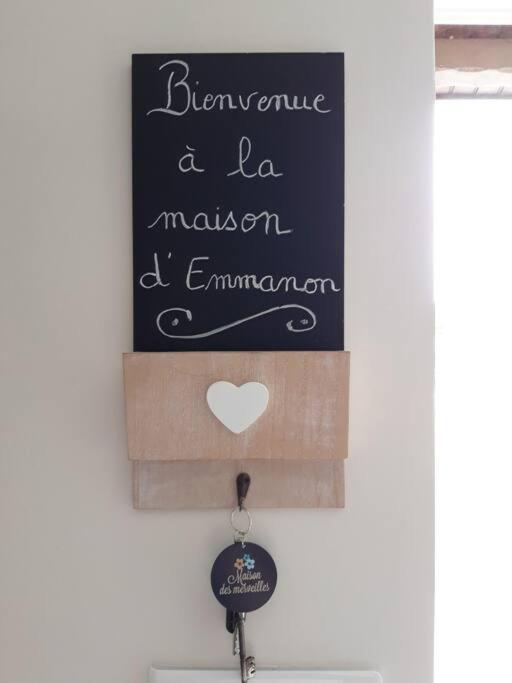 Bienvenue
à la
maison
d'Emmanon
Maison
des merveilles